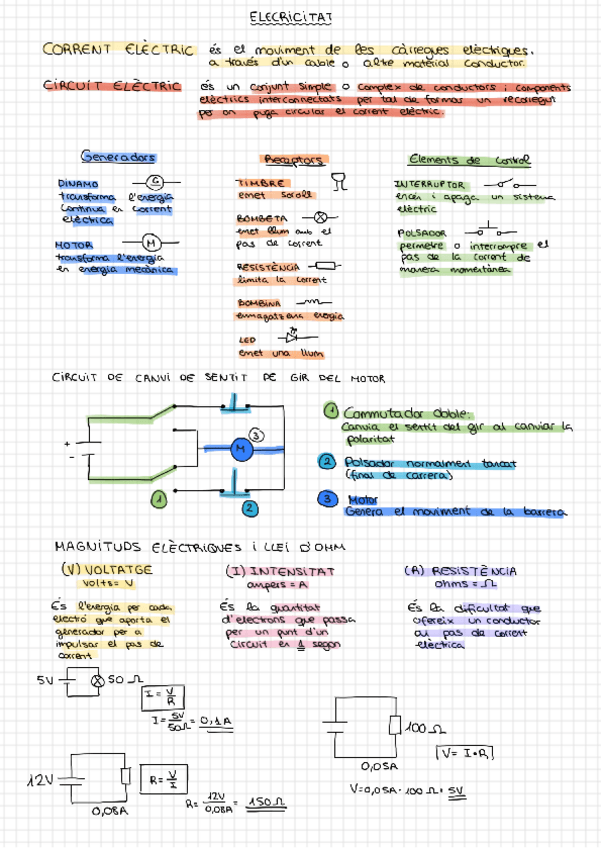 ELECRICITAT
CORRENT ELÈCTRIC és el moviment de les càrregues elèctriques,
a través d'un cable o altre material conductor.
CIRCUIT ELÈCTRIC és un conjunt simple o complex de conductors i components
elèctrics interconnectats per tal de formar un recorregut
pe on pugi circular el corrent elèctric.
Generadors
DINAMO G
transforma l'energia
contínua en corrent
elèctrica
MOTOR M
transforma l'energia
en energia mecànica
Receptors
TIMBRE
emet soroll
BOMBETA
emet llum amb el
pas de corrent
RESISTÈNCIA
limita la corrent
BOMBINA
emmagatzema energia
LED
emet una llum
Elements de control
INTERRUPTOR
encén i apaga un sistema
elèctric
POLSADOR
permetre o interrompre el
pas de la corrent de
manera momentànea
CIRCUIT DE CANVI DE SENTIT DE GIR DEL MOTOR
+
-
M
3
1
2
1 Commutador doble:
Canvia el sentit del gir al canviar la
polaritat
2 Polsador normalment tancat
(final de carrera)
3 Motor
Genera el moviment de la barrera
MAGNITUDS ELÈCTRIQUES I LLEI D'OHM
(V) VOLTATGE
volts = V
És l'energia per cada
electró que aporta el
generador per a
impulsar el pas de
corrent
(I) INTENSITAT
ampers = A
És la quantitat
d'electrons que passa
per un punt d'un
circuit en 1 segon
(R) RESISTÈNCIA
ohms = Ω
És la dificultat que
ofereix un conductor
al pas de corrent
elèctrica
5V 50 Ω
I = V/R
I = 5V/50Ω = 0,1A
12V
0,08A
R = V/I
R = 12V/0,08A = 150 Ω
100 Ω
0,05A
V = I · R
V = 0,05A · 100 Ω = 5V